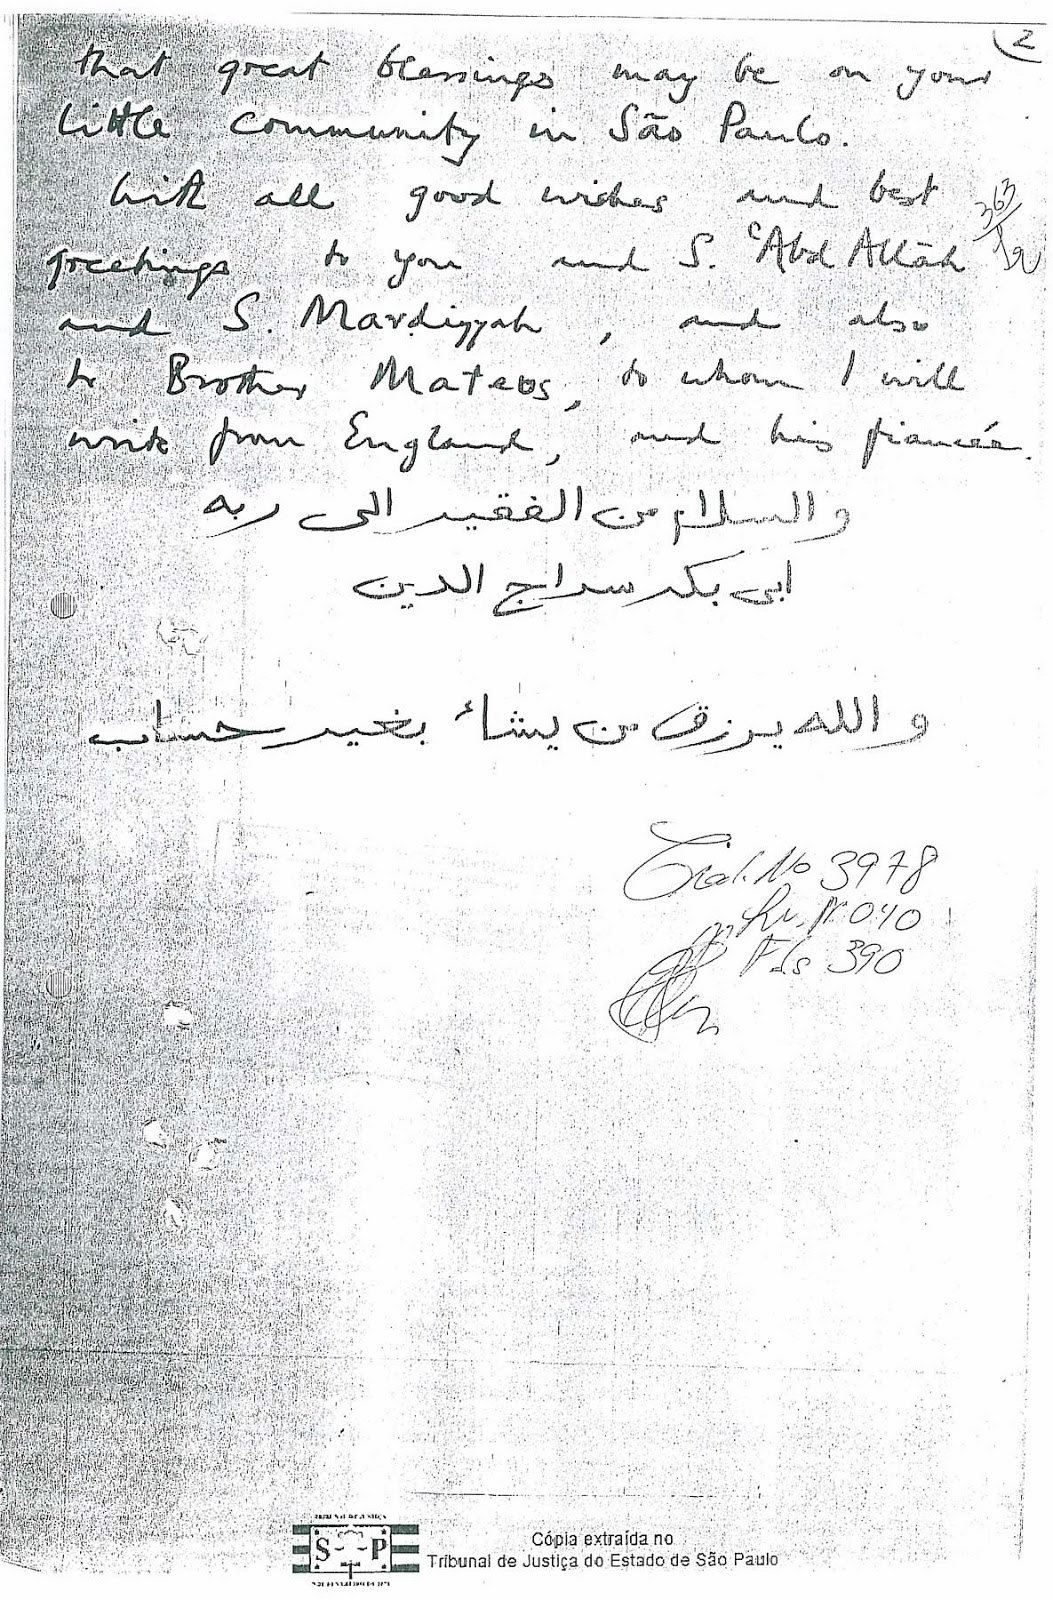 2
that great blessings may be on your
little community in São Paulo.
With all good wishes and best
363
greetings to you and S. ʿAbd Allāh
and S. Mardiyyah, and also
to Brother Mateus, to whom I will
write from England, and his fiancée.
والسلام من الفقير الى ربه
ابى بكر سراج الدين
والله يرزق من يشاء بغير حساب
Trad. No 3978
Lv. Nº 040
Fls 390
S P
Cópia extraída no
Tribunal de Justiça do Estado de São Paulo